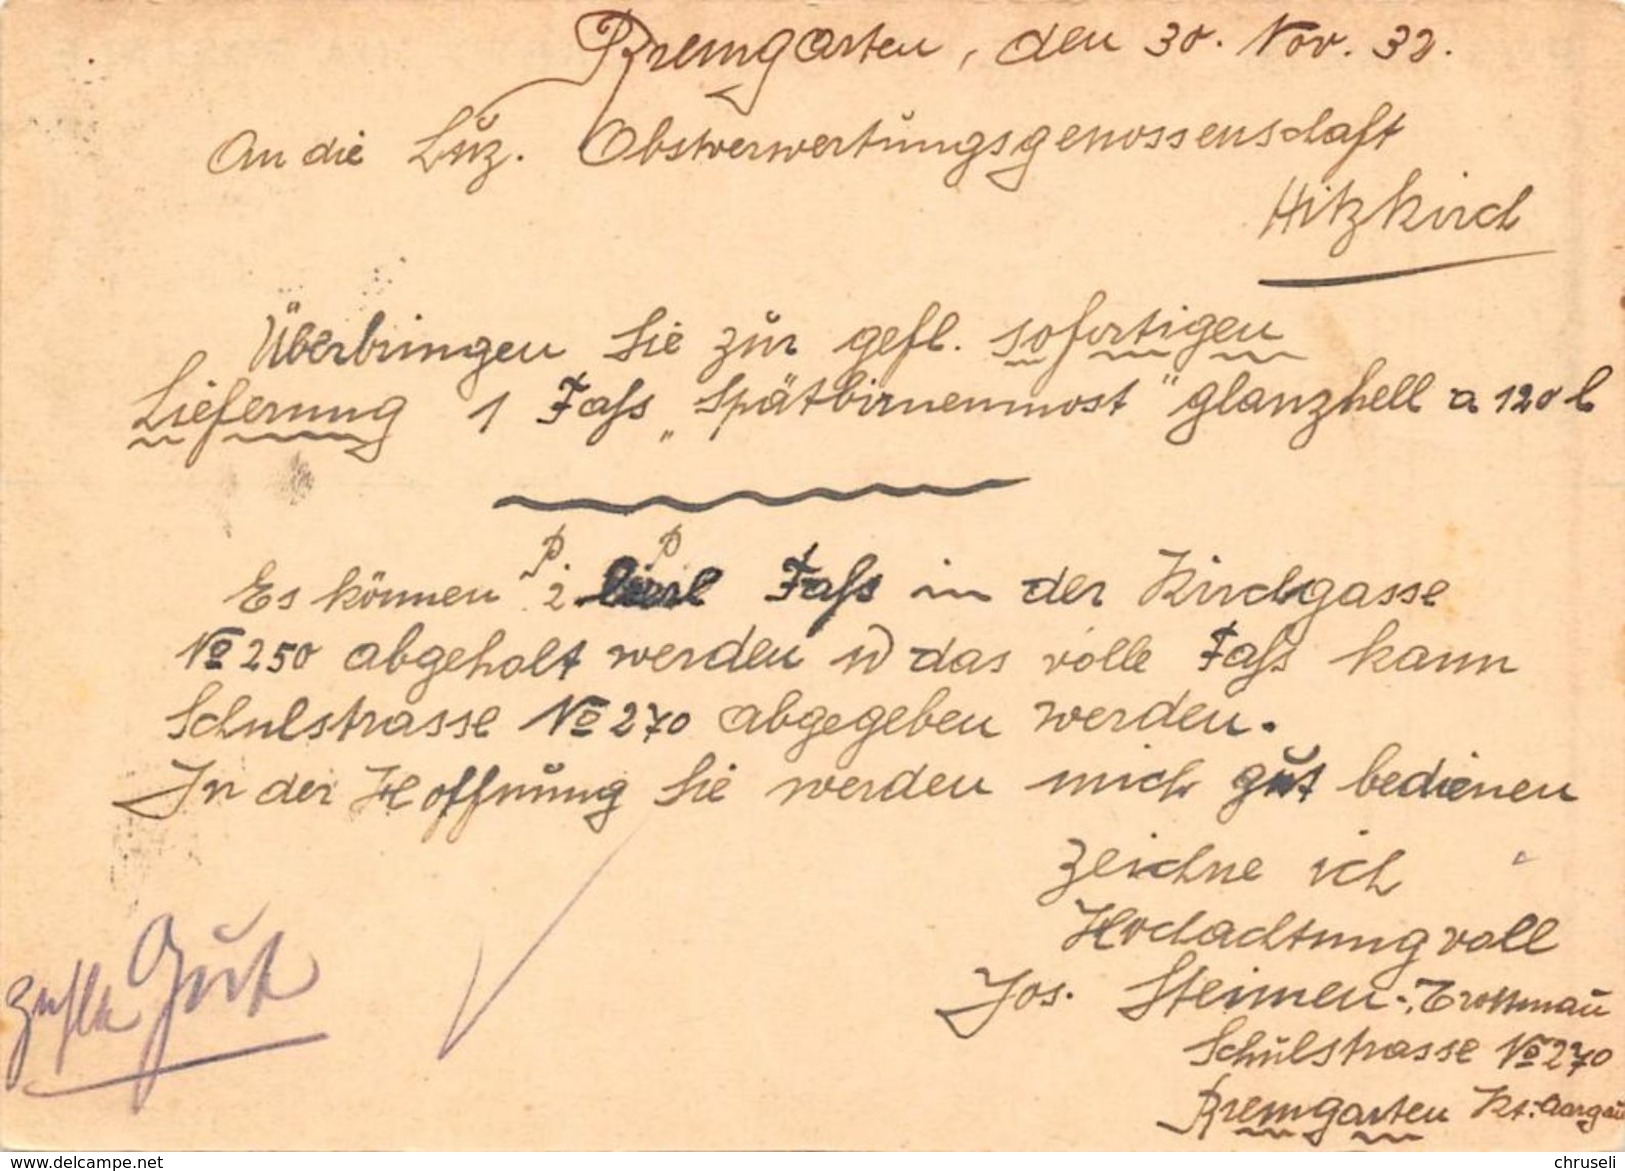 Bremgarten, den 30. Nov. 32.
An die Luz. Obstverwertungsgenossenschaft
Hitzkirch
Überbringen Sie zur gefl. sofortigen
Lieferung 1 Fass „Spätbirnenmost" glanzhell a 120 l
Es können 2 Fass in der Kirchgasse
No 250 abgeholt werden u das volle Fass kann
Schulstrasse No 270 abgegeben werden.
In der Hoffnung Sie werden mich gut bedienen
zeichne ich
Hochachtungvoll
Jos. Steimen-Trottmau
Schulstrasse No 270
Bremgarten Kt. Aargau
zahlt Gut
www.delcampe.net
chruseli